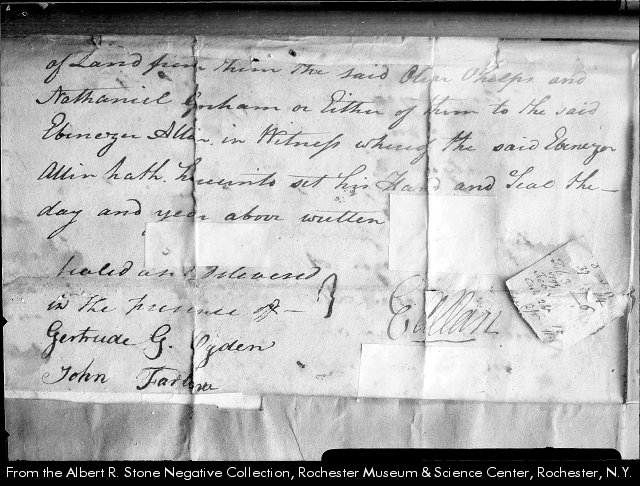 of Land from them the said Oliver Phelps and
Nathaniel Gorham or Either of them to the said
Ebenezer Allin in Witneſs whereof the said Ebenezer
Allin hath hereunto set his Hand and Seal the—
day and year above written
Sealed and Delivered
in the presence of—
Gertrude G. Ogden
John
E Allan
From the Albert R. Stone Negative Collection, Rochester Museum & Science Center, Rochester, N.Y.